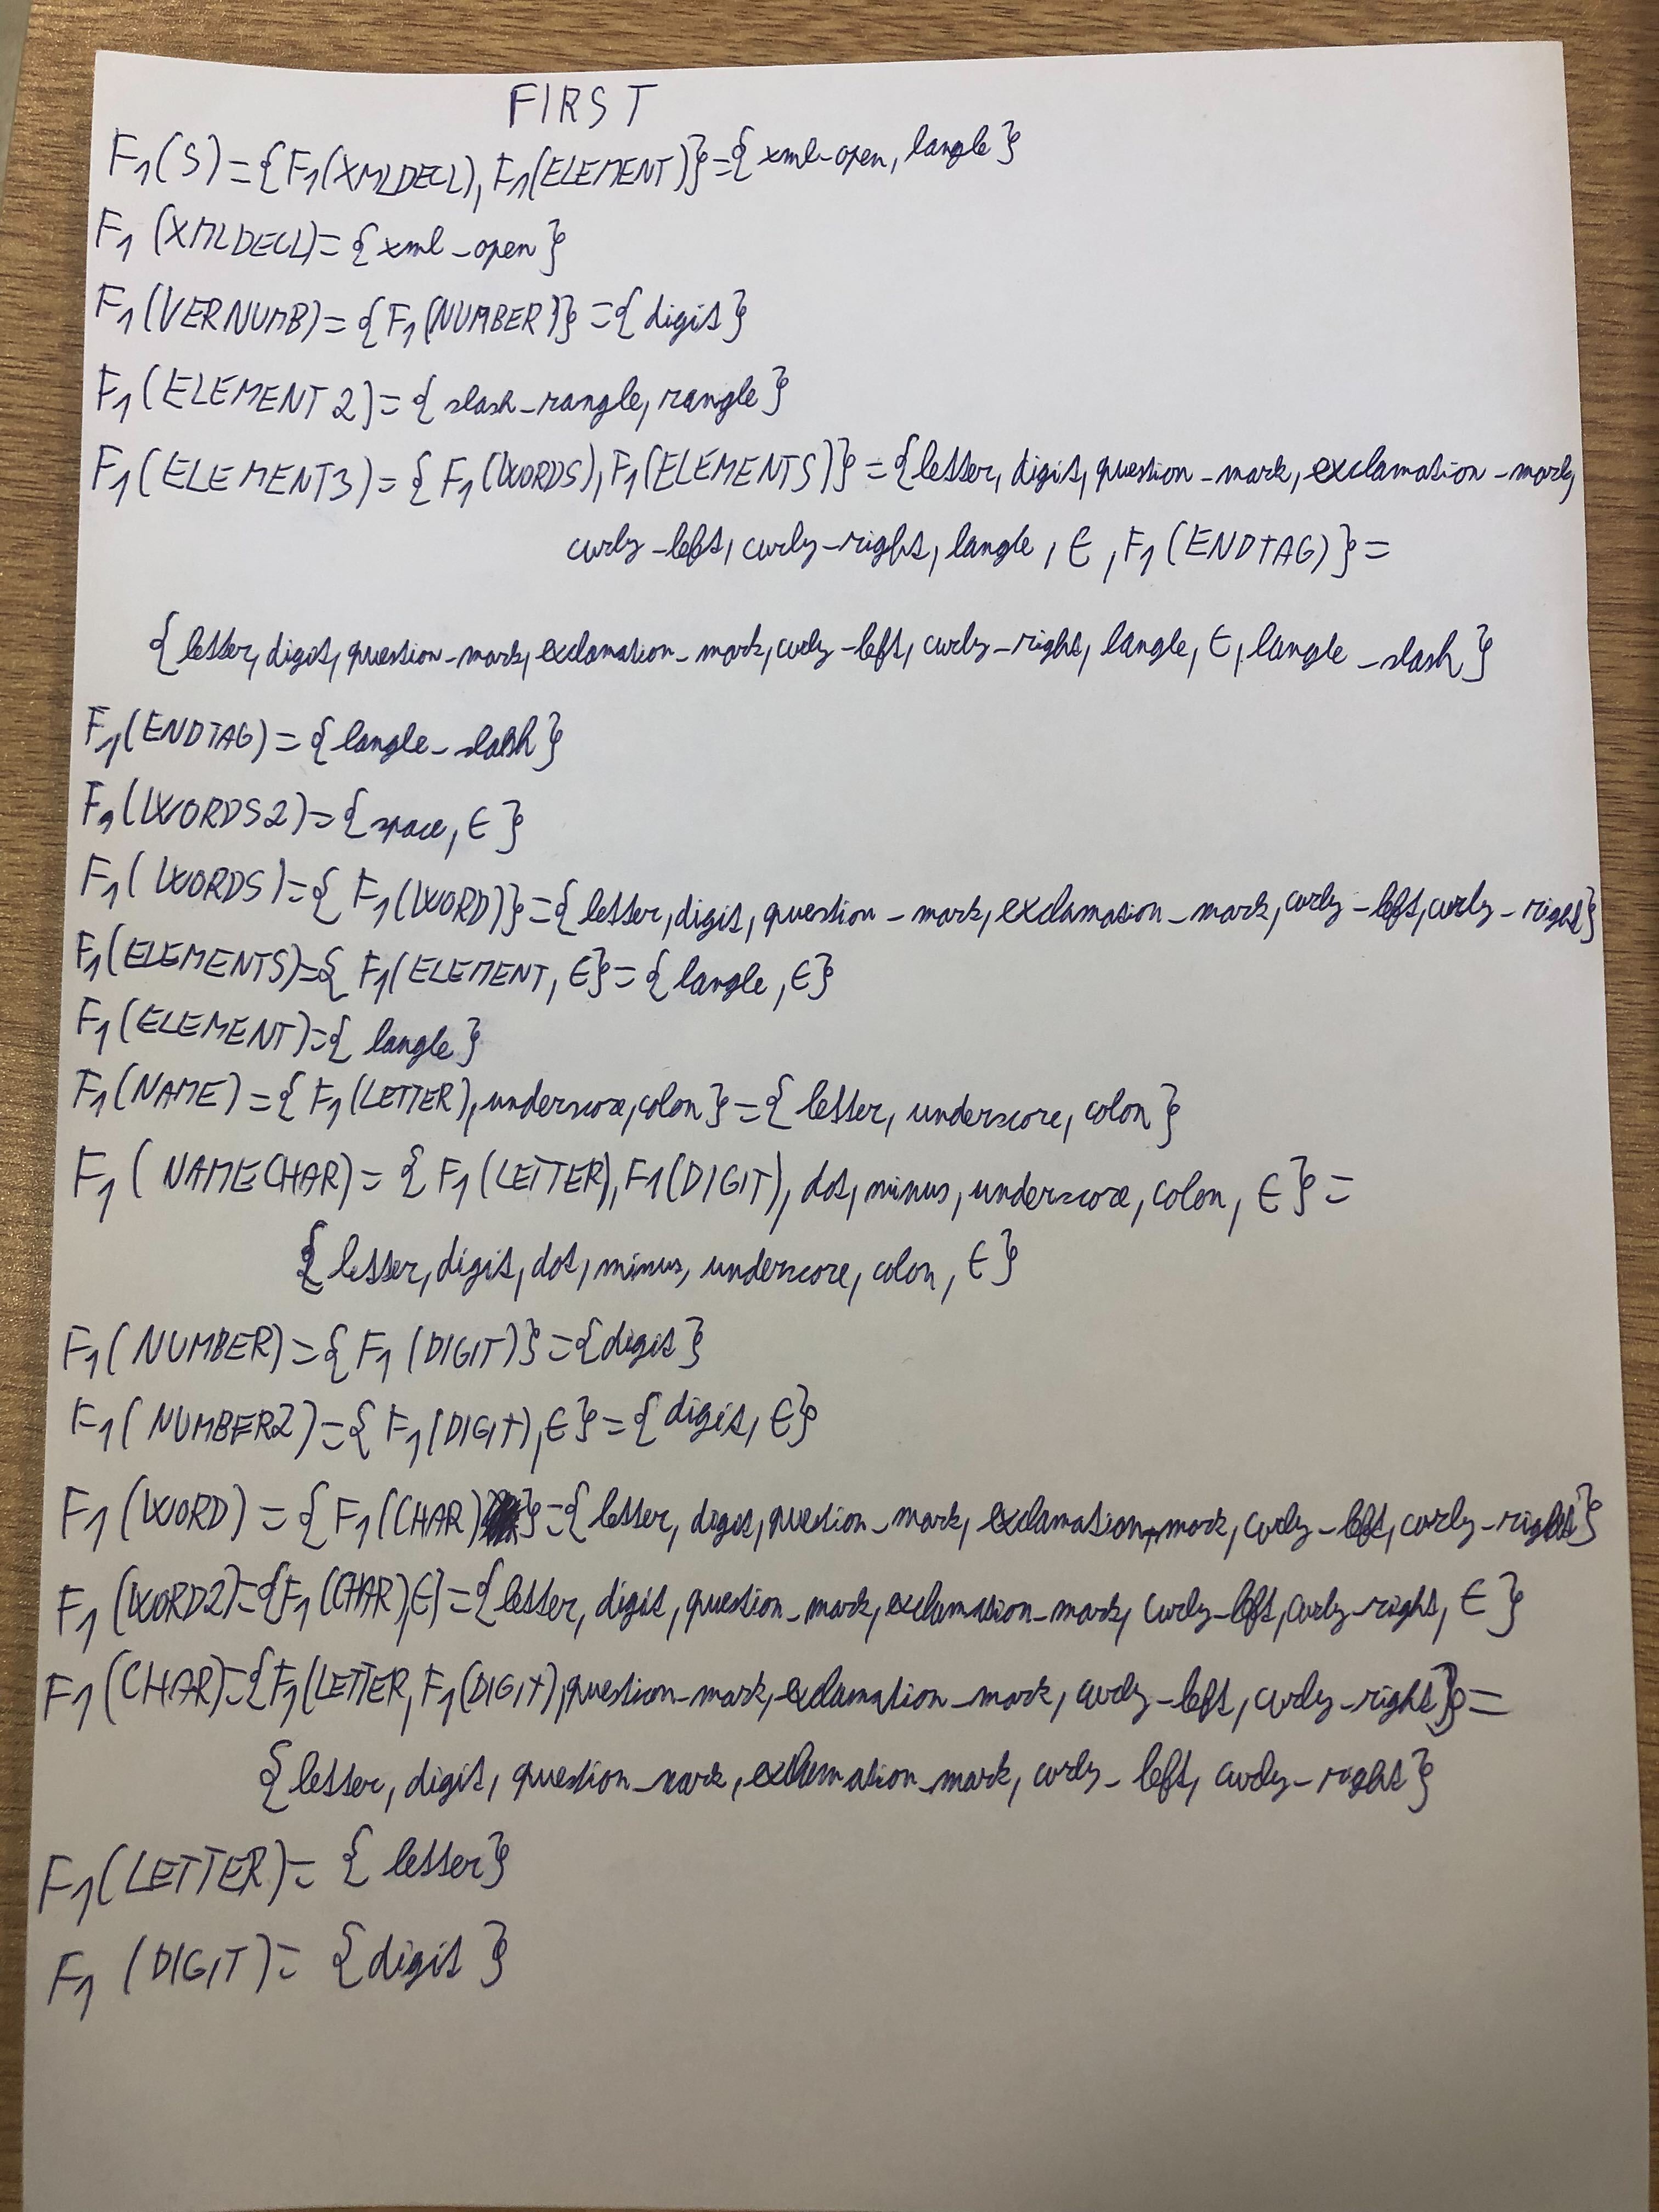 FIRST
F1(S)={F1(XMLDECL), F1(ELEMENT)}={xml-open, langle}
F1(XMLDECL)={xml_open}
F1(VERNUMB)={F1(NUMBER)}={digit}
F1(ELEMENT2)={slash_rangle, rangle}
F1(ELEMENT3)={F1(WORDS), F1(ELEMENTS)}={letter, digit, question_mark, exclamation_mark,
curly_left, curly_right, langle, ε, F1(ENDTAG)}=
{letter, digit, question_mark, exclamation_mark, curly_left, curly_right, langle, ε, langle_slash}
F1(ENDTAG)={langle_slash}
F1(WORDS2)={space, ε}
F1(WORDS)={F1(WORD)}={letter, digit, question_mark, exclamation_mark, curly_left, curly_right}
F1(ELEMENTS)={F1(ELEMENT, ε}={langle, ε}
F1(ELEMENT)={langle}
F1(NAME)={F1(LETTER), underscore, colon}={letter, underscore, colon}
F1(NAMECHAR)={F1(LETTER), F1(DIGIT), dot, minus, underscore, colon, ε}=
{letter, digit, dot, minus, underscore, colon, ε}
F1(NUMBER)={F1(DIGIT)}={digit}
F1(NUMBER2)={F1(DIGIT), ε}={digit, ε}
F1(WORD)={F1(CHAR)}={letter, digit, question_mark, exclamation_mark, curly_left, curly_right}
F1(WORD2)={F1(CHAR), ε}={letter, digit, question_mark, exclamation_mark, curly_left, curly_right, ε}
F1(CHAR)={F1(LETTER, F1(DIGIT), question_mark, exclamation_mark, curly_left, curly_right}=
{letter, digit, question_mark, exclamation_mark, curly_left, curly_right}
F1(LETTER)={letter}
F1(DIGIT)={digit}